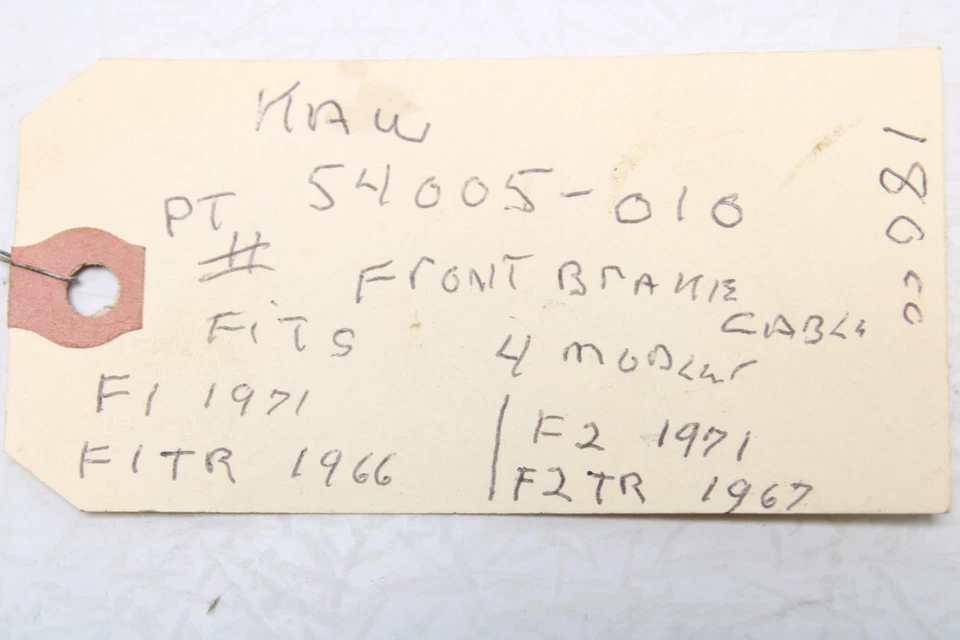 KAW
PT # 54005-010
FRONT BRAKE
CABLE
FITS 4 MODELS
F1 1971
F1TR 1966
F2 1971
F2TR 1967